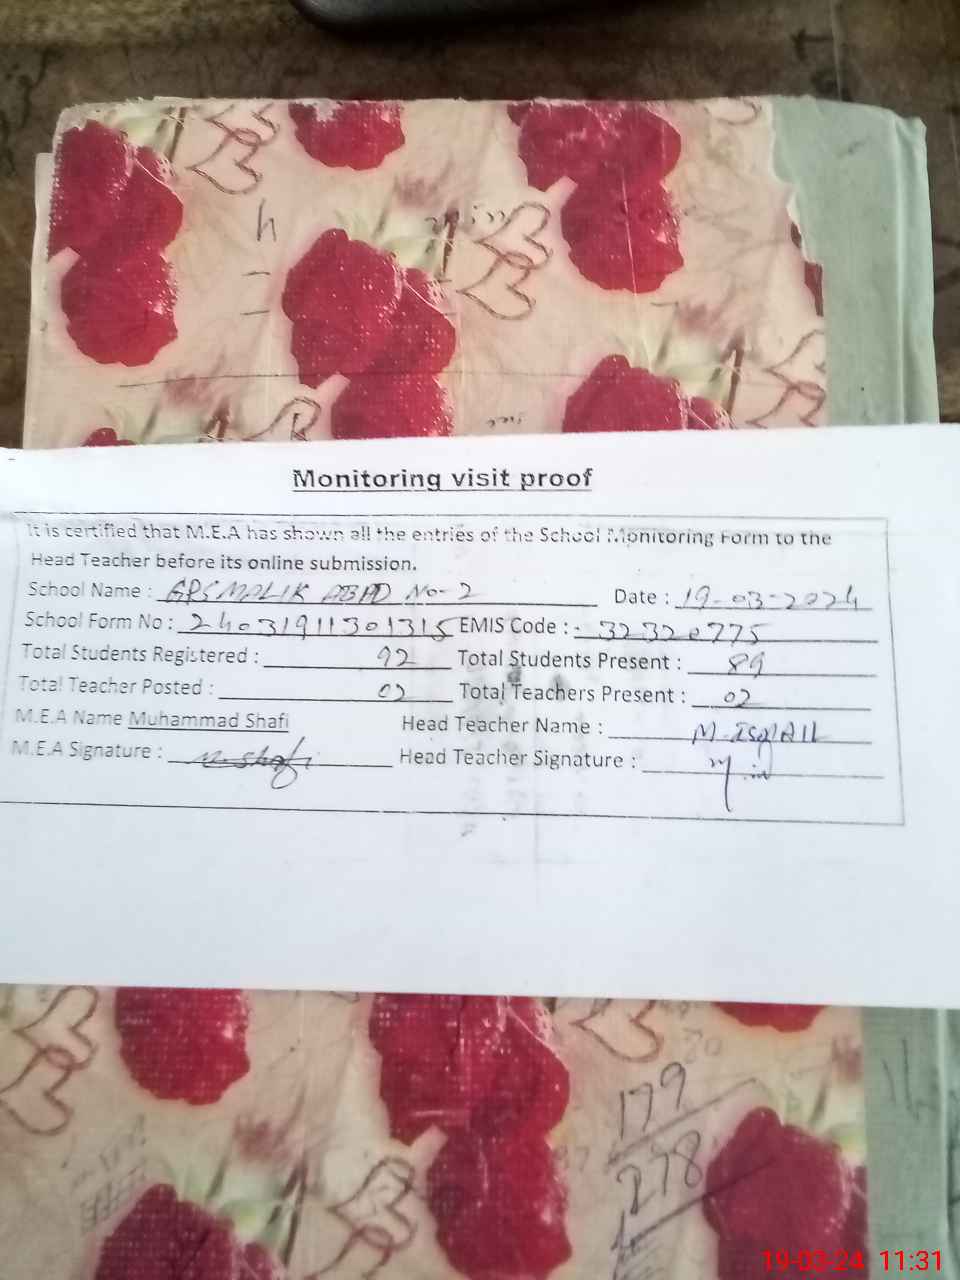 Monitoring visit proof
It is certified that M.E.A has shown all the entries of the School Monitoring Form to the
Head Teacher before its online submission.
School Name : GPS MALIK ABAD No-2 Date : 19-03-2024
School Form No : 24031911301315 EMIS Code : 32320775
Total Students Registered : 92 Total Students Present : 89
Total Teacher Posted : 02 Total Teachers Present : 02
M.E.A Name Muhammad Shafi Head Teacher Name :
M.E.A Signature : M.Shafi Head Teacher Signature :
179
278
19-03-24 11:31